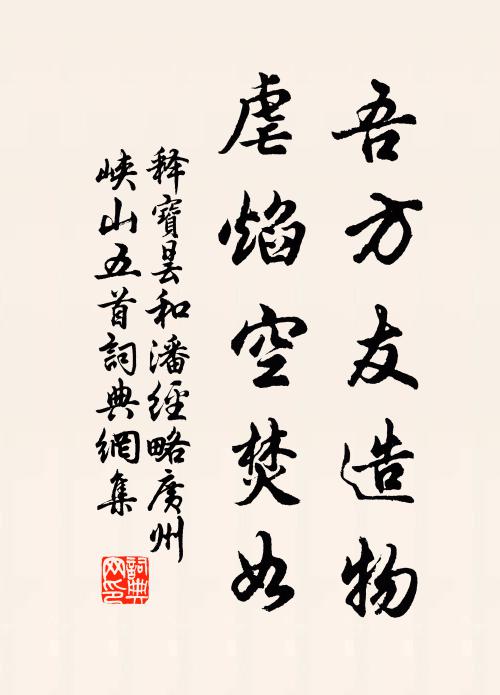 吾方友造物
虐焰空焚如
释寶曇和潘經略廣州
峽山五首詞典網集
詞典
网印